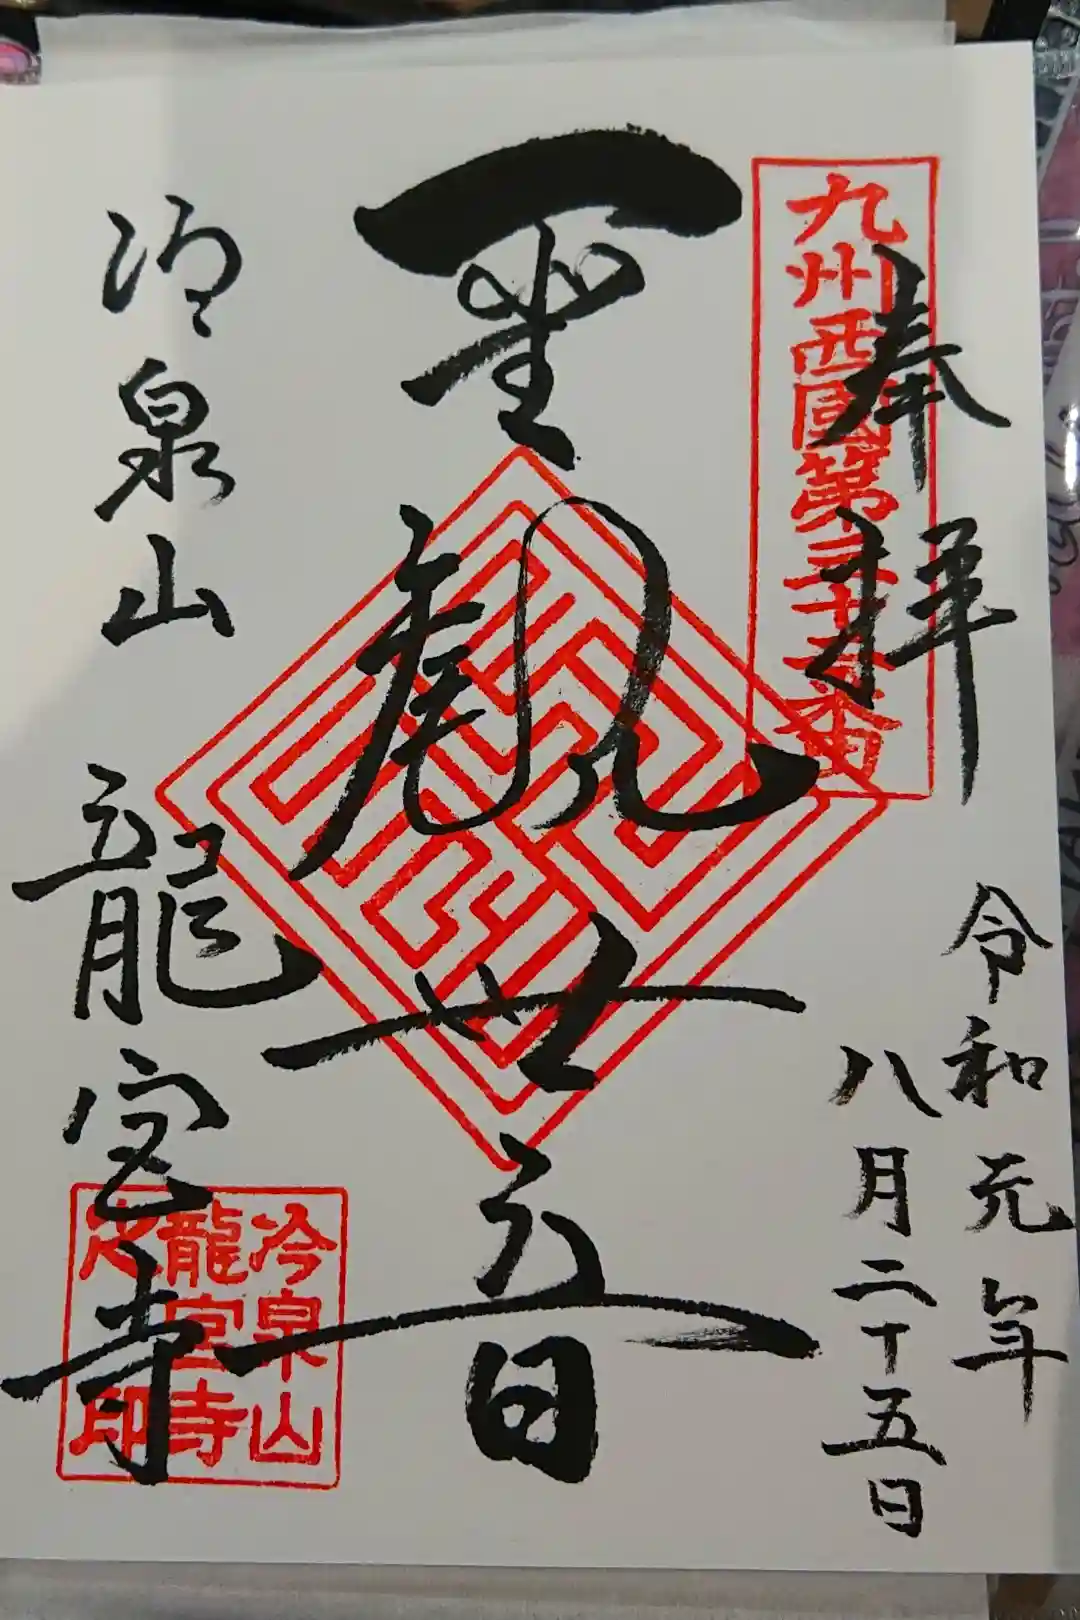 奉拝
九州西國第三十二番
令和元年
八月二十五日
聖観世音
冷泉山 龍宮寺
冷泉山
龍宮寺
之印